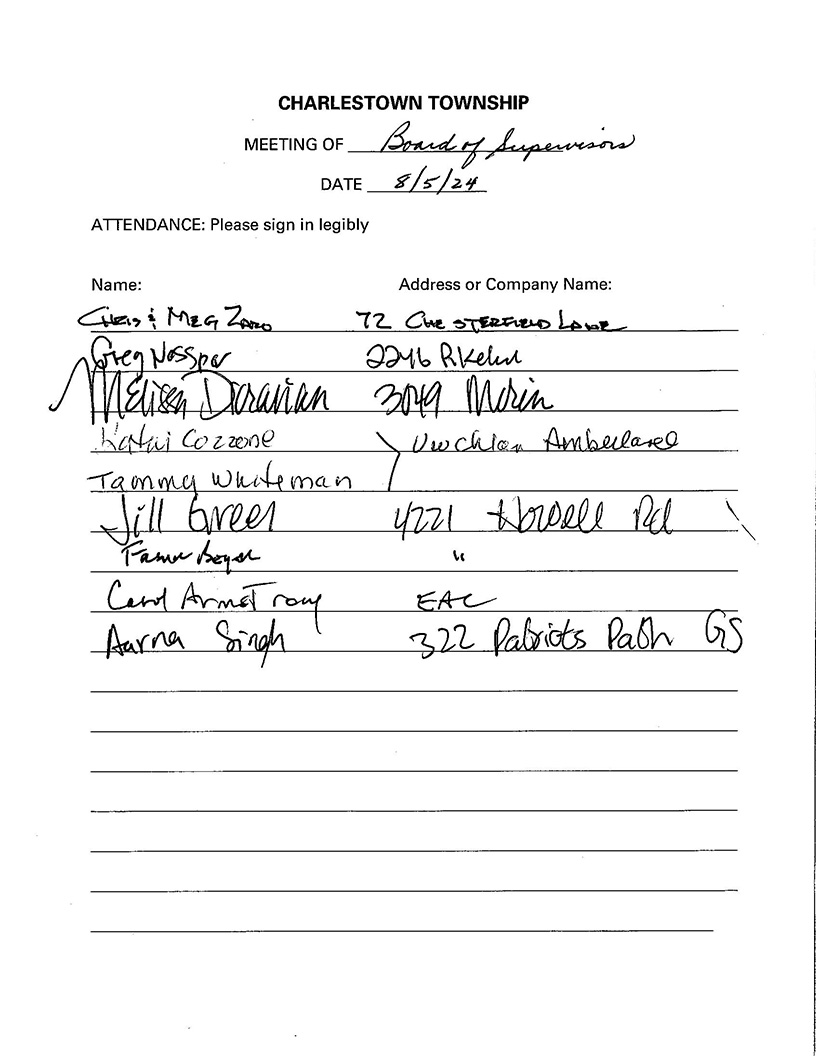 CHARLESTOWN TOWNSHIP
MEETING OF Board of Supervisors
DATE 8/5/24
ATTENDANCE: Please sign in legibly
Name: Address or Company Name:
CHRIS & MEG ZARO 72 CHESTERFIELD LANE
Greg Nosspor 2246
Melissa 3049
Cozzone Uwchlan Ambulance
Tammy Whiteman
Jill Green 4221 Howell Rd
"
Carol Armstrong EAC
Aarna Singh 322 Patriots Path GS